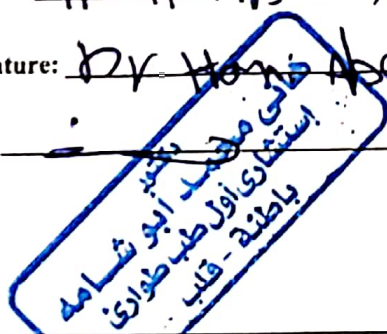 ature: Dr Hani Abo
دكتور
هاني محمد أبو شامه
إستشارى أول طب طوارئ
باطنة - قلب